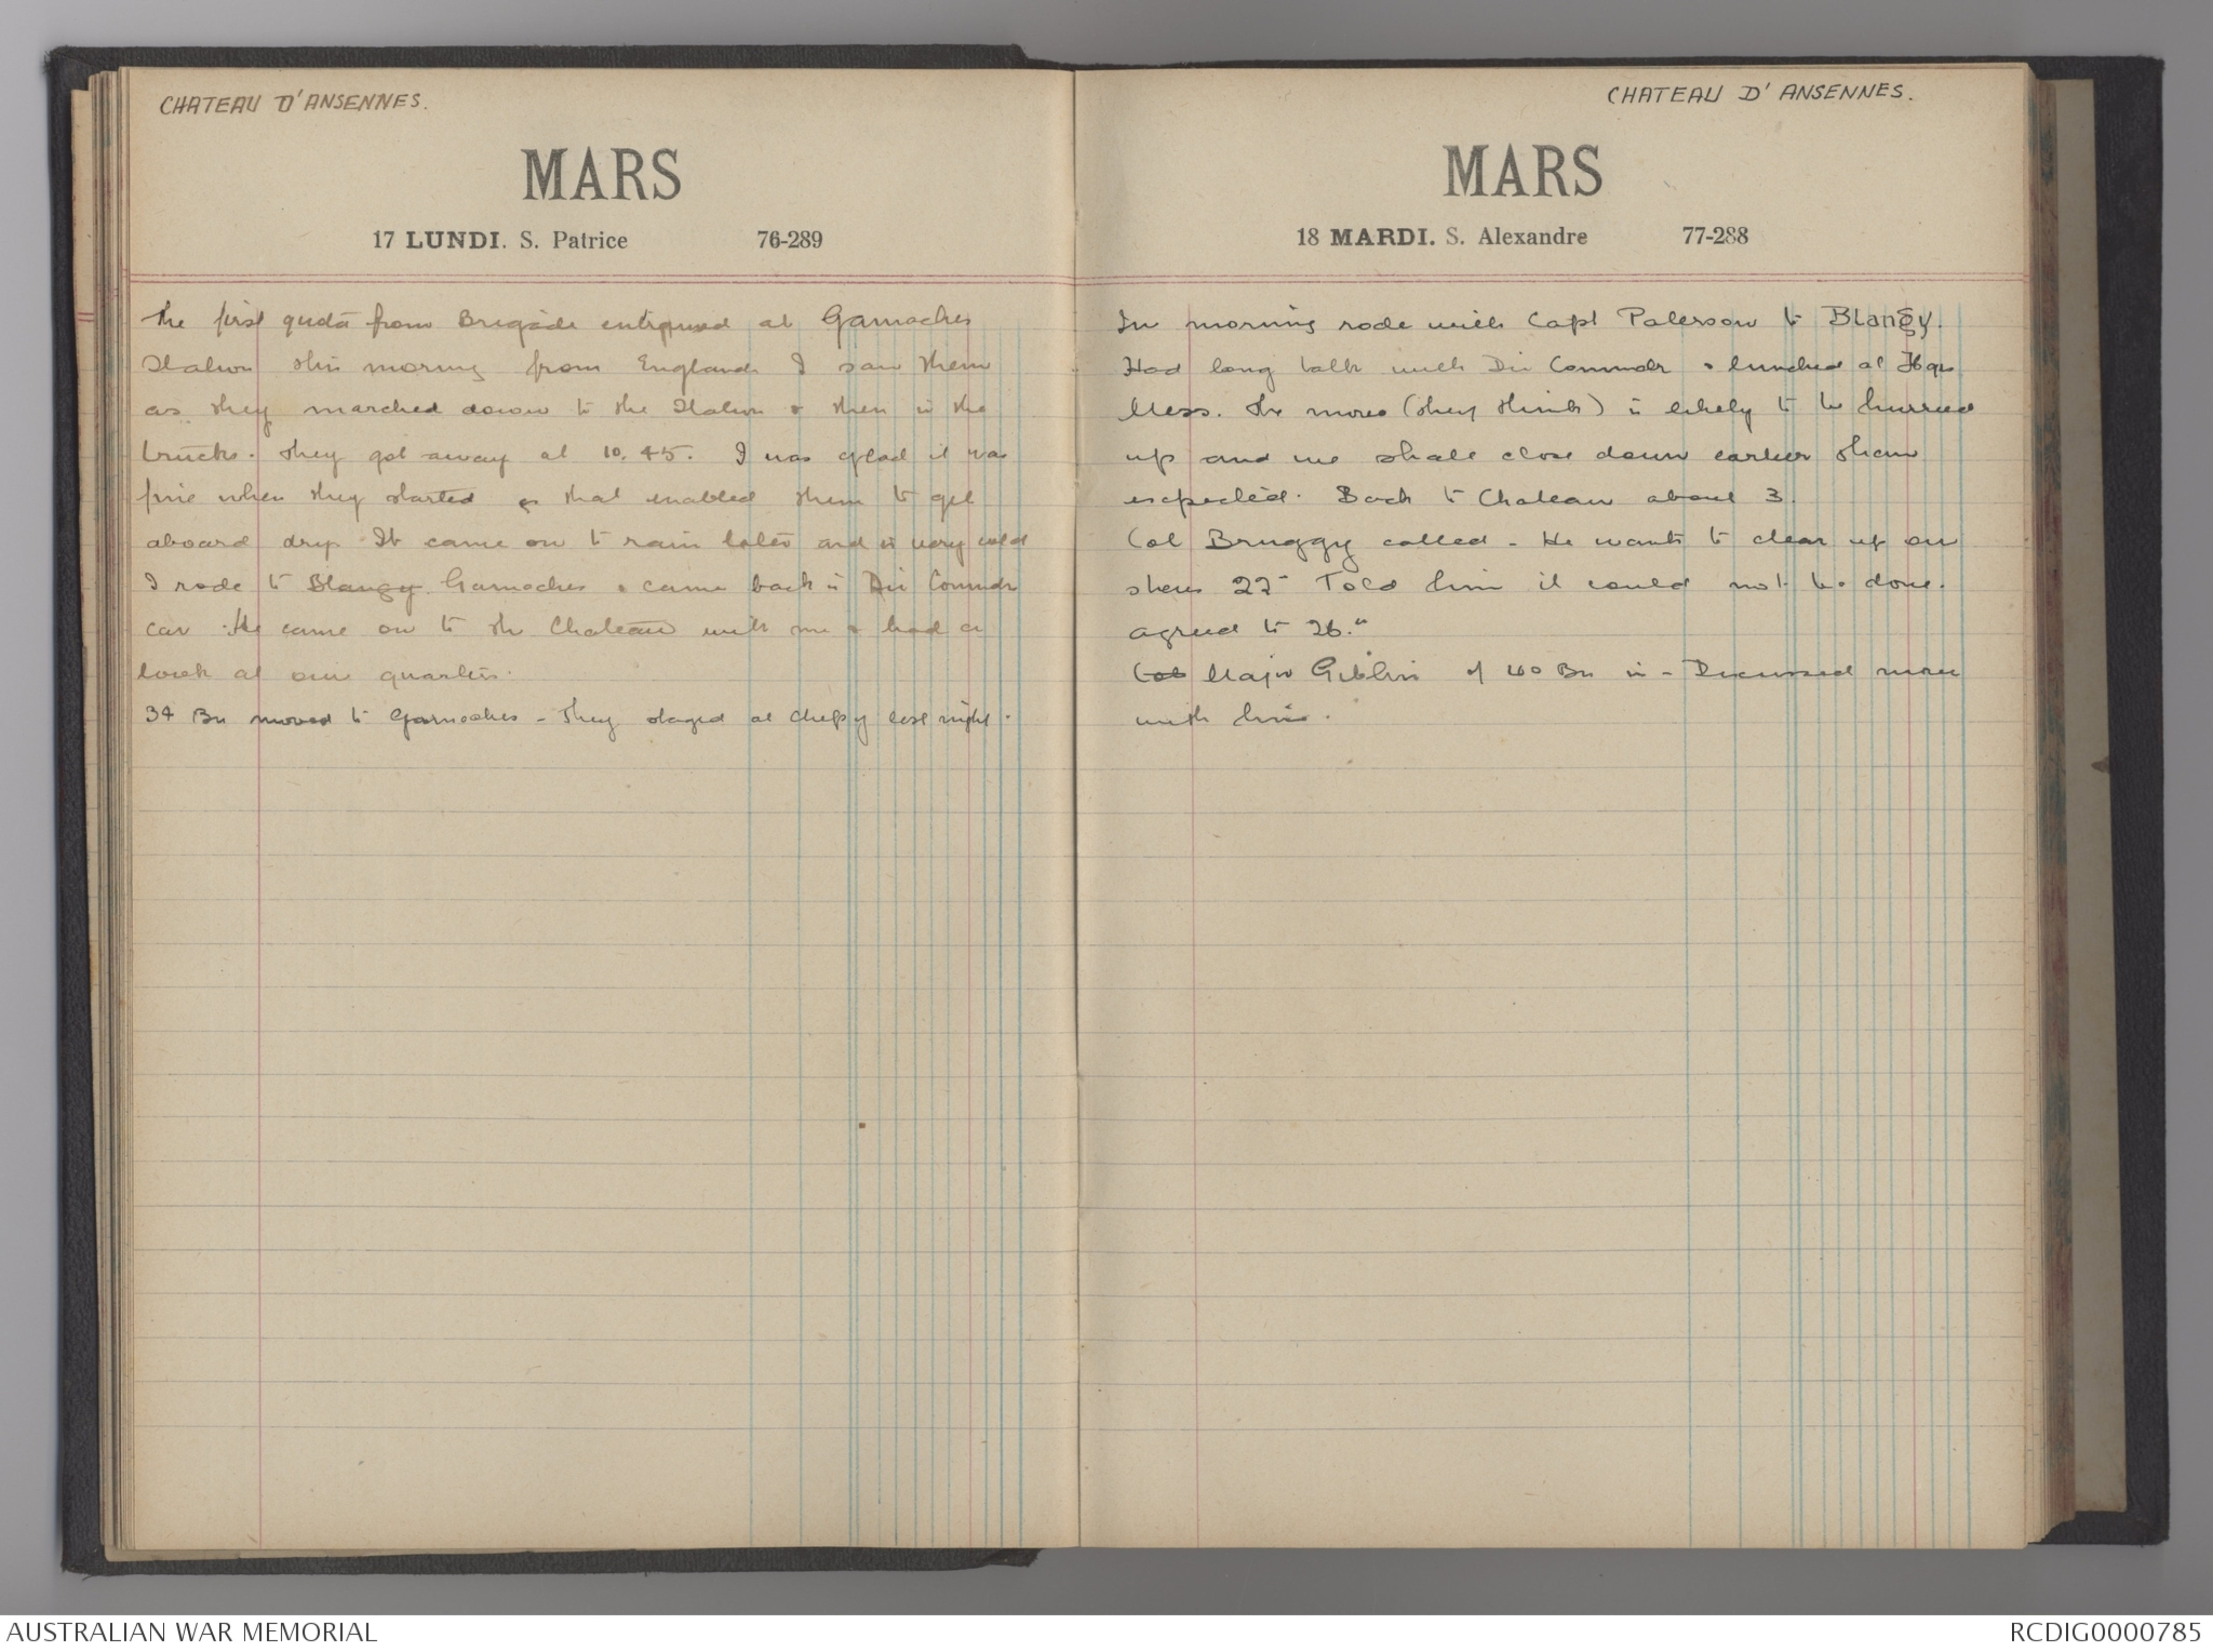 CHATEAU D'ANSENNES.
MARS
17 LUNDI. S. Patrice 76-289
The first quota from Brigade entrained at Gamaches
Station this morning from England I saw them
as they marched down to the Station & then in the
trucks. They got away at 10.45. I was glad it was
fine when they started as that enabled them to get
aboard dry. It came on to rain later and is very cold
I rode to Blangy Gamaches & came back in Div Commdr
car. He came on to the Chateau with me & had a
look at our quarters.
34 Bn moved to Gamaches - They staged at Chepy last night.
CHATEAU D'ANSENNES.
MARS
18 MARDI. S. Alexandre 77-288
In morning rode with Capt Paterson to Blangy.
Had long talk with Div Commdr & lunched at Hqrs
Mess. The move (they think) is likely to be hurried
up and we shall close down earlier than
expected. Back to Chateau about 3.
Col Bruggy called - He wants to clear up on
22 Told him it could not be done.
agreed to 26."
Col Major Giblin of 40 Bn in - Discussed move
with him.
AUSTRALIAN WAR MEMORIAL
RCDIG0000785